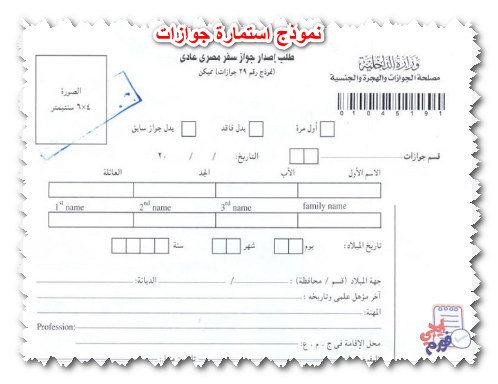 نموذج استمارة جوازات
وزارة الداخلية
مصلحة الجوازات والهجرة والجنسية
01045191
طلب إصدار جواز سفر مصرى عادى
(نموذج رقم ٢٩ جوازات) مميكن
الصورة
٤×٦ سنتيمتر
أول مرة بدل فاقد بدل جواز سابق
قسم جوازات التاريخ: / / ٢٠
الاسم الأول الأب الجد العائلة
1st name 2nd name 3rd name family name
تاريخ الميلاد: يوم شهر سنة
جهة الميلاد (قسم / محافظة) : / الديانة:
آخر مؤهل علمى وتاريخه :
المهنة:
Profession:
محل الإقامة فى ج . م . ع: